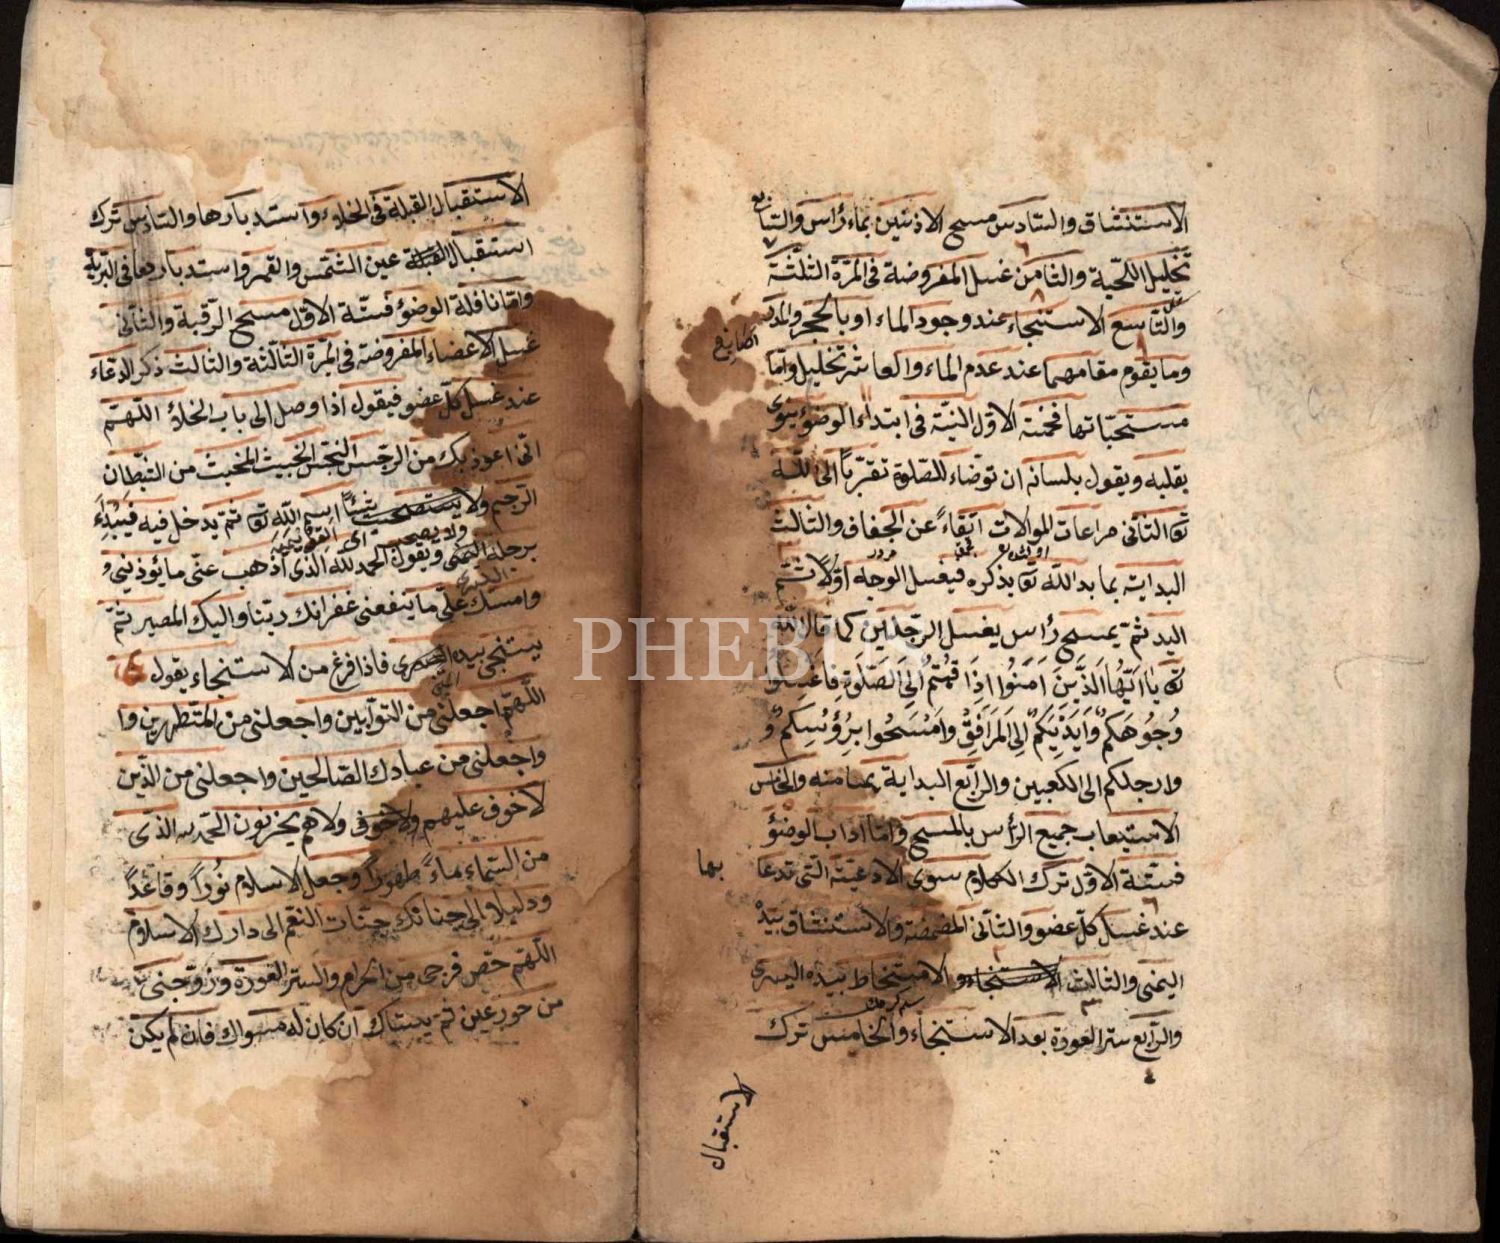 الاستنشاق والسادس مسح الاذنين بماء رأس والسابع
تخليل اللحية والثامن غسل المفروضة في المرة الثلثة
والتاسع الاستنجاء عند وجود الماء او بالحجر والمدر
وما يقوم مقامهما عند عدم الماء والعاشر تخليل واما
مستحباتها فخمسة الاول النية في ابتداء الوضوء ينوى
بقلبه ويقول بلسانه ان توضاء للصلوة تقربا الى الله
تع الثاني مراعات الموالات اتقاء عن الجفاف والثالث
البداية بما بد الله تع بذكره فيغسل الوجه اولا ثم
اليد ثم يمسح رأس يغسل الرجلين كما قال الله
تع يَا اَيُّهَا الَّذِينَ اٰمَنُوا اِذَا قُمْتُمْ اِلَى الصَّلٰوةِ فَاغْسِلُوا
وُجُوهَكُمْ وَاَيْدِيَكُمْ اِلَى الْمَرَافِقِ وَامْسَحُوا بِرُؤُسِكُمْ وَ
وارجلكم الى الكعبين والرابع البداية بميامنه والخامس
الاستيعاب جميع الرأس بالمسح واما اداب الوضوء
فستة الاول ترك الكلام سوى الادعية التي تدعا
بها
عند غسل كل عضو والثاني المضمضة والاستنشاق بيد
اليمنى والثالث الاستنجاء والامتخاط بيده اليسرى
والرابع ستر العورة بعد الاستنجاء والخامس ترك
لاستقبال
الاستقبال القبلة في الخلاء واستدبارها والسادس ترك
استقبال القبلة عين الشمس والقمر واستدبارهما في البرية
واما نافلة الوضوء فستة الاول مسح الرقبة والثاني
غسل الاعضاء المفروضة في المرة الثالثة والثالث ذكر الدعاء
عند غسل كل عضو فيقول اذا وصل الى باب الخلاء اللهم
اني اعوذ بك من الرجس النجس الخبيث المخبث من الشيطان
الرجيم ولا يستصحب شيئا اسم الله تع ثم يدخل فيه فيبداء
برجله اليمنى ويقول الحمد لله الذى اذهب عني ما يؤذيني و
وامسك علي ما ينفعني غفرانك ربنا واليك المصير ثم
يستنجي بيده اليسرى فاذا فرغ من الاستنجاء يقول
اللهم اجعلني من التوابين واجعلني من المتطهرين وا
واجعلني من عبادك الصالحين واجعلني من الذين
لا خوف عليهم ولا خوف ولا هم يحزنون الحمد لله الذى
من السماء ماء طهورا وجعل الاسلام نورا وقائدا
ودليلا الى جناتك جنات النعيم الى دارك الاسلام
اللهم حصن فرجي من الحرام والستر العورة وزوجني
من حور عين ثم يستاك ان كان له مسواك فان لم يكن
PHEBUS